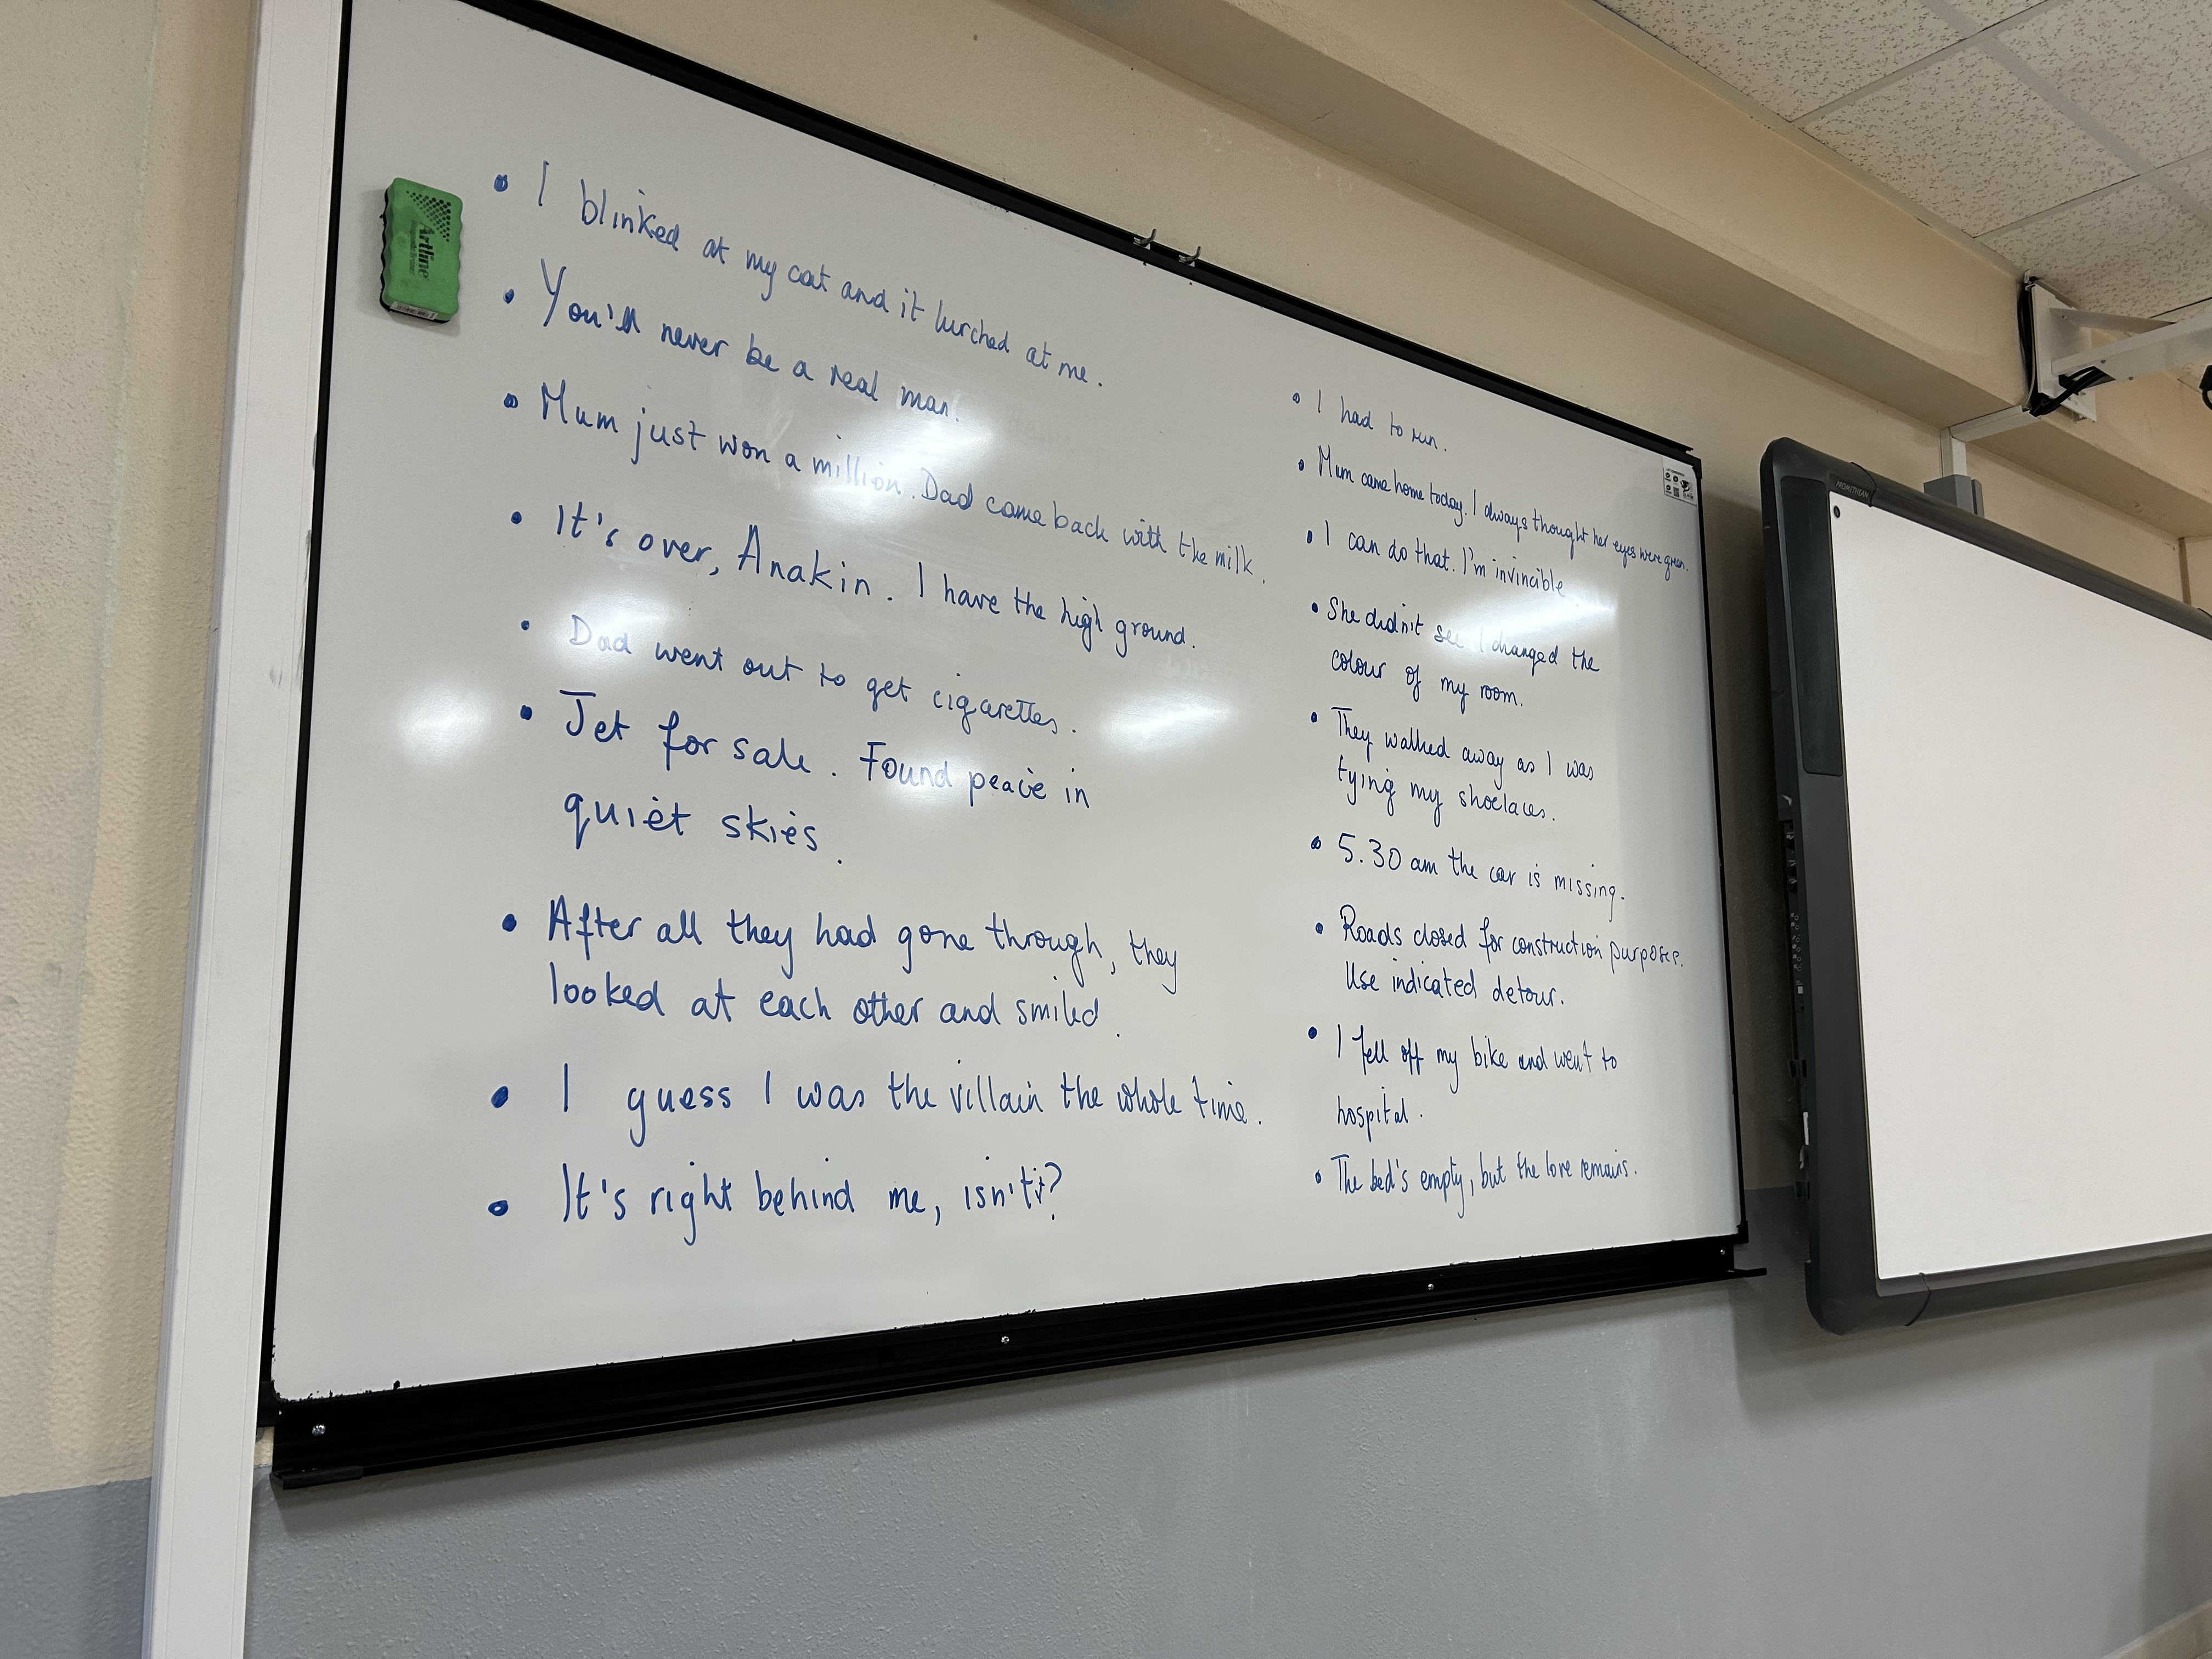 • I blinked at my cat and it lurched at me.
• You'll never be a real man!
• Mum just won a million. Dad came back with the milk.
• It's over, Anakin. I have the high ground.
• Dad went out to get cigarettes.
• Jet for sale. Found peace in
quiet skies.
• After all they had gone through, they
looked at each other and smiled.
• I guess I was the villain the whole time.
• It's right behind me, isn't it?
• I had to run.
• Mum came home today. I always thought her eyes were green.
• I can do that. I'm invincible.
• She didn't see I changed the
colour of my room.
• They walked away as I was
tying my shoelaces.
• 5.30 am the car is missing.
• Roads closed for construction purposes.
Use indicated detour.
• I fell off my bike and went to
hospital.
• The bed's empty, but the love remains.
Artline
PROMETHEAN